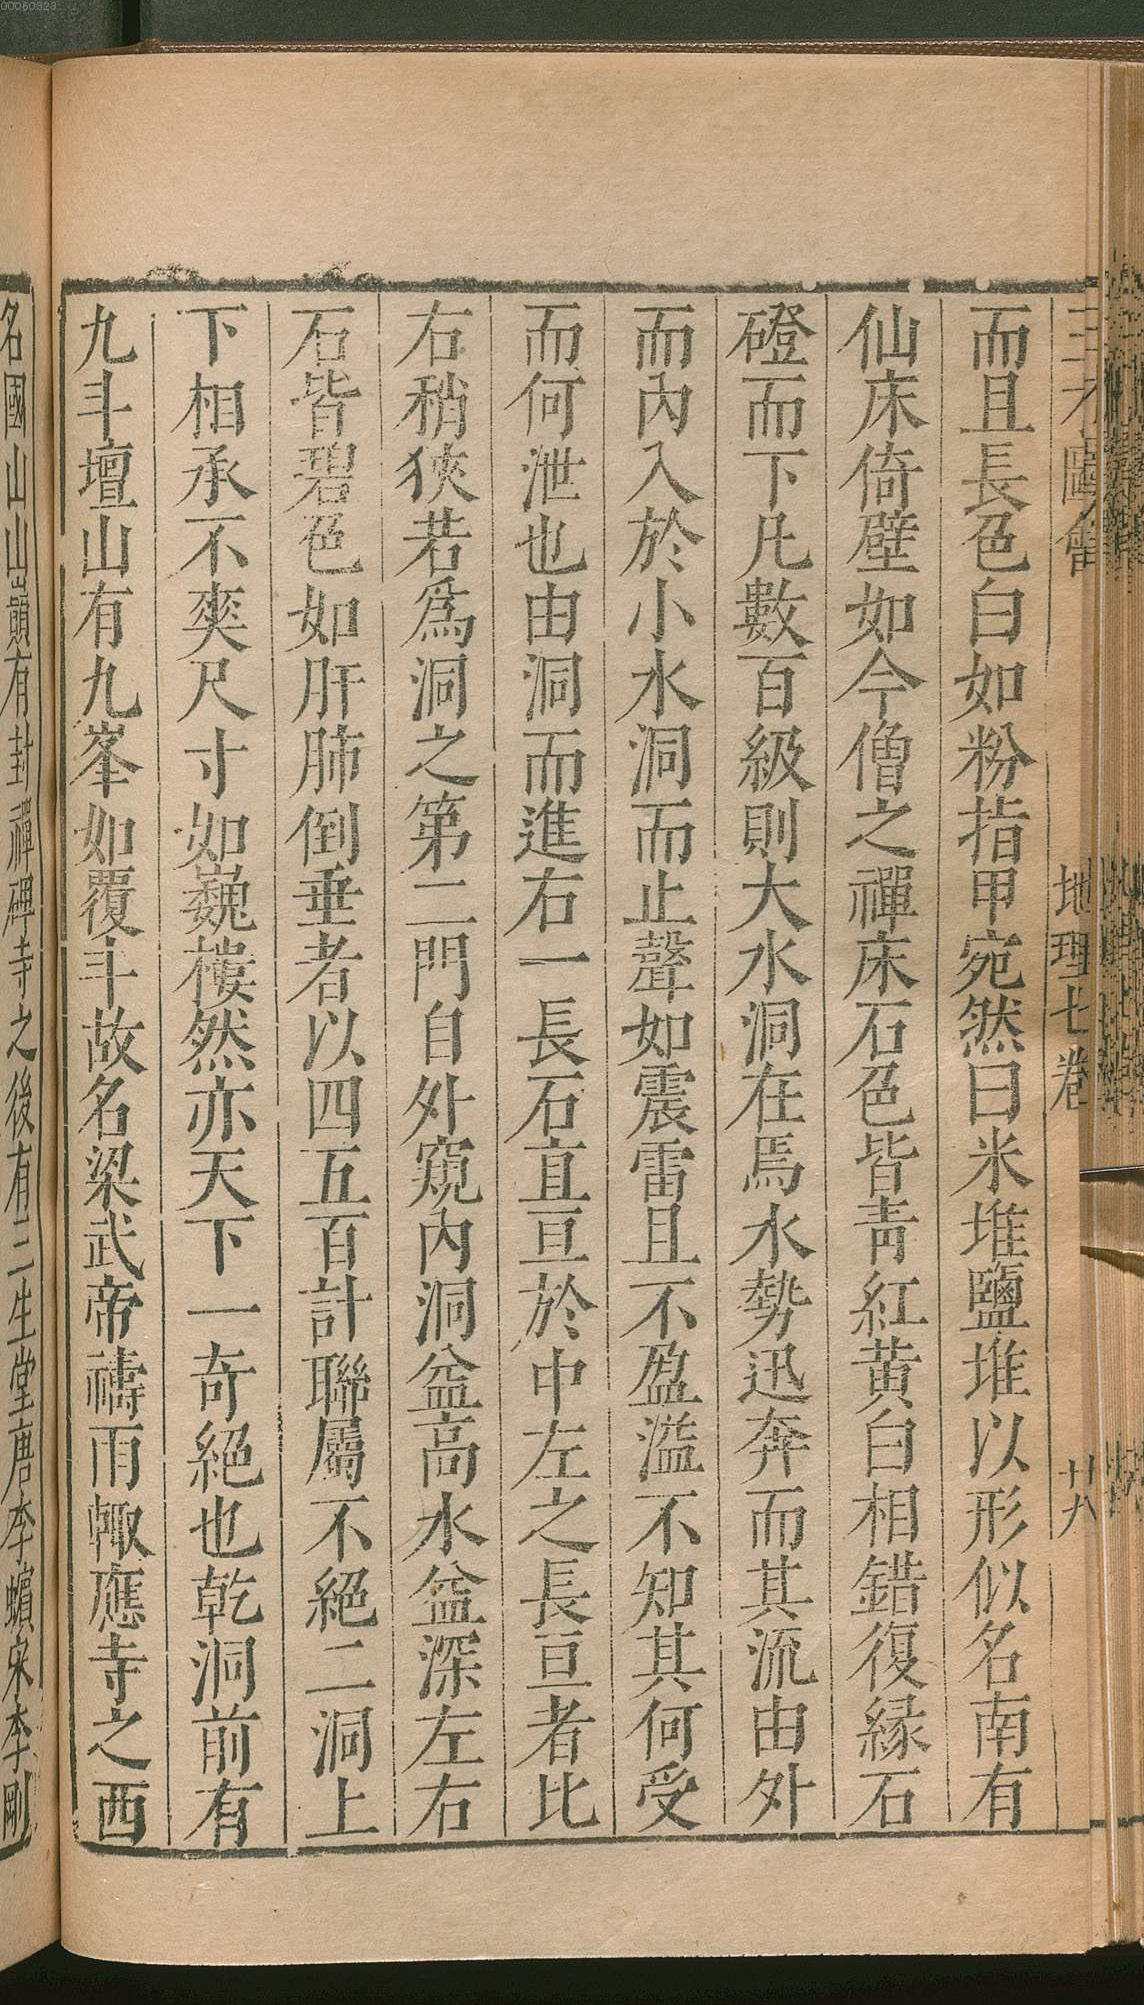 00060323
三才圖會 地理七卷 廿八
而且長色白如粉指甲宛然曰米堆鹽堆以形似名南有
仙床倚壁如今僧之禪床石色皆青紅黃白相錯復緣石
磴而下凡數百級則大水洞在焉水勢迅奔而其流由外
而內入於小水洞而止聲如震雷且不盈溢不知其何受
而何泄也由洞而進右一長石直亘於中左之長亘者比
右稍狹若爲洞之第二門自外窺內洞益高水益深左右
石皆碧色如肝肺倒垂者以四五百計聯屬不絕二洞上
下相承不爽尺寸如巍樓然亦天下一奇絕也乾洞前有
九斗壇山有九峯如覆斗故名梁武帝禱雨輙應寺之西
名國山山巔有封禪碑寺之後有三生堂唐李蠙宋李剛